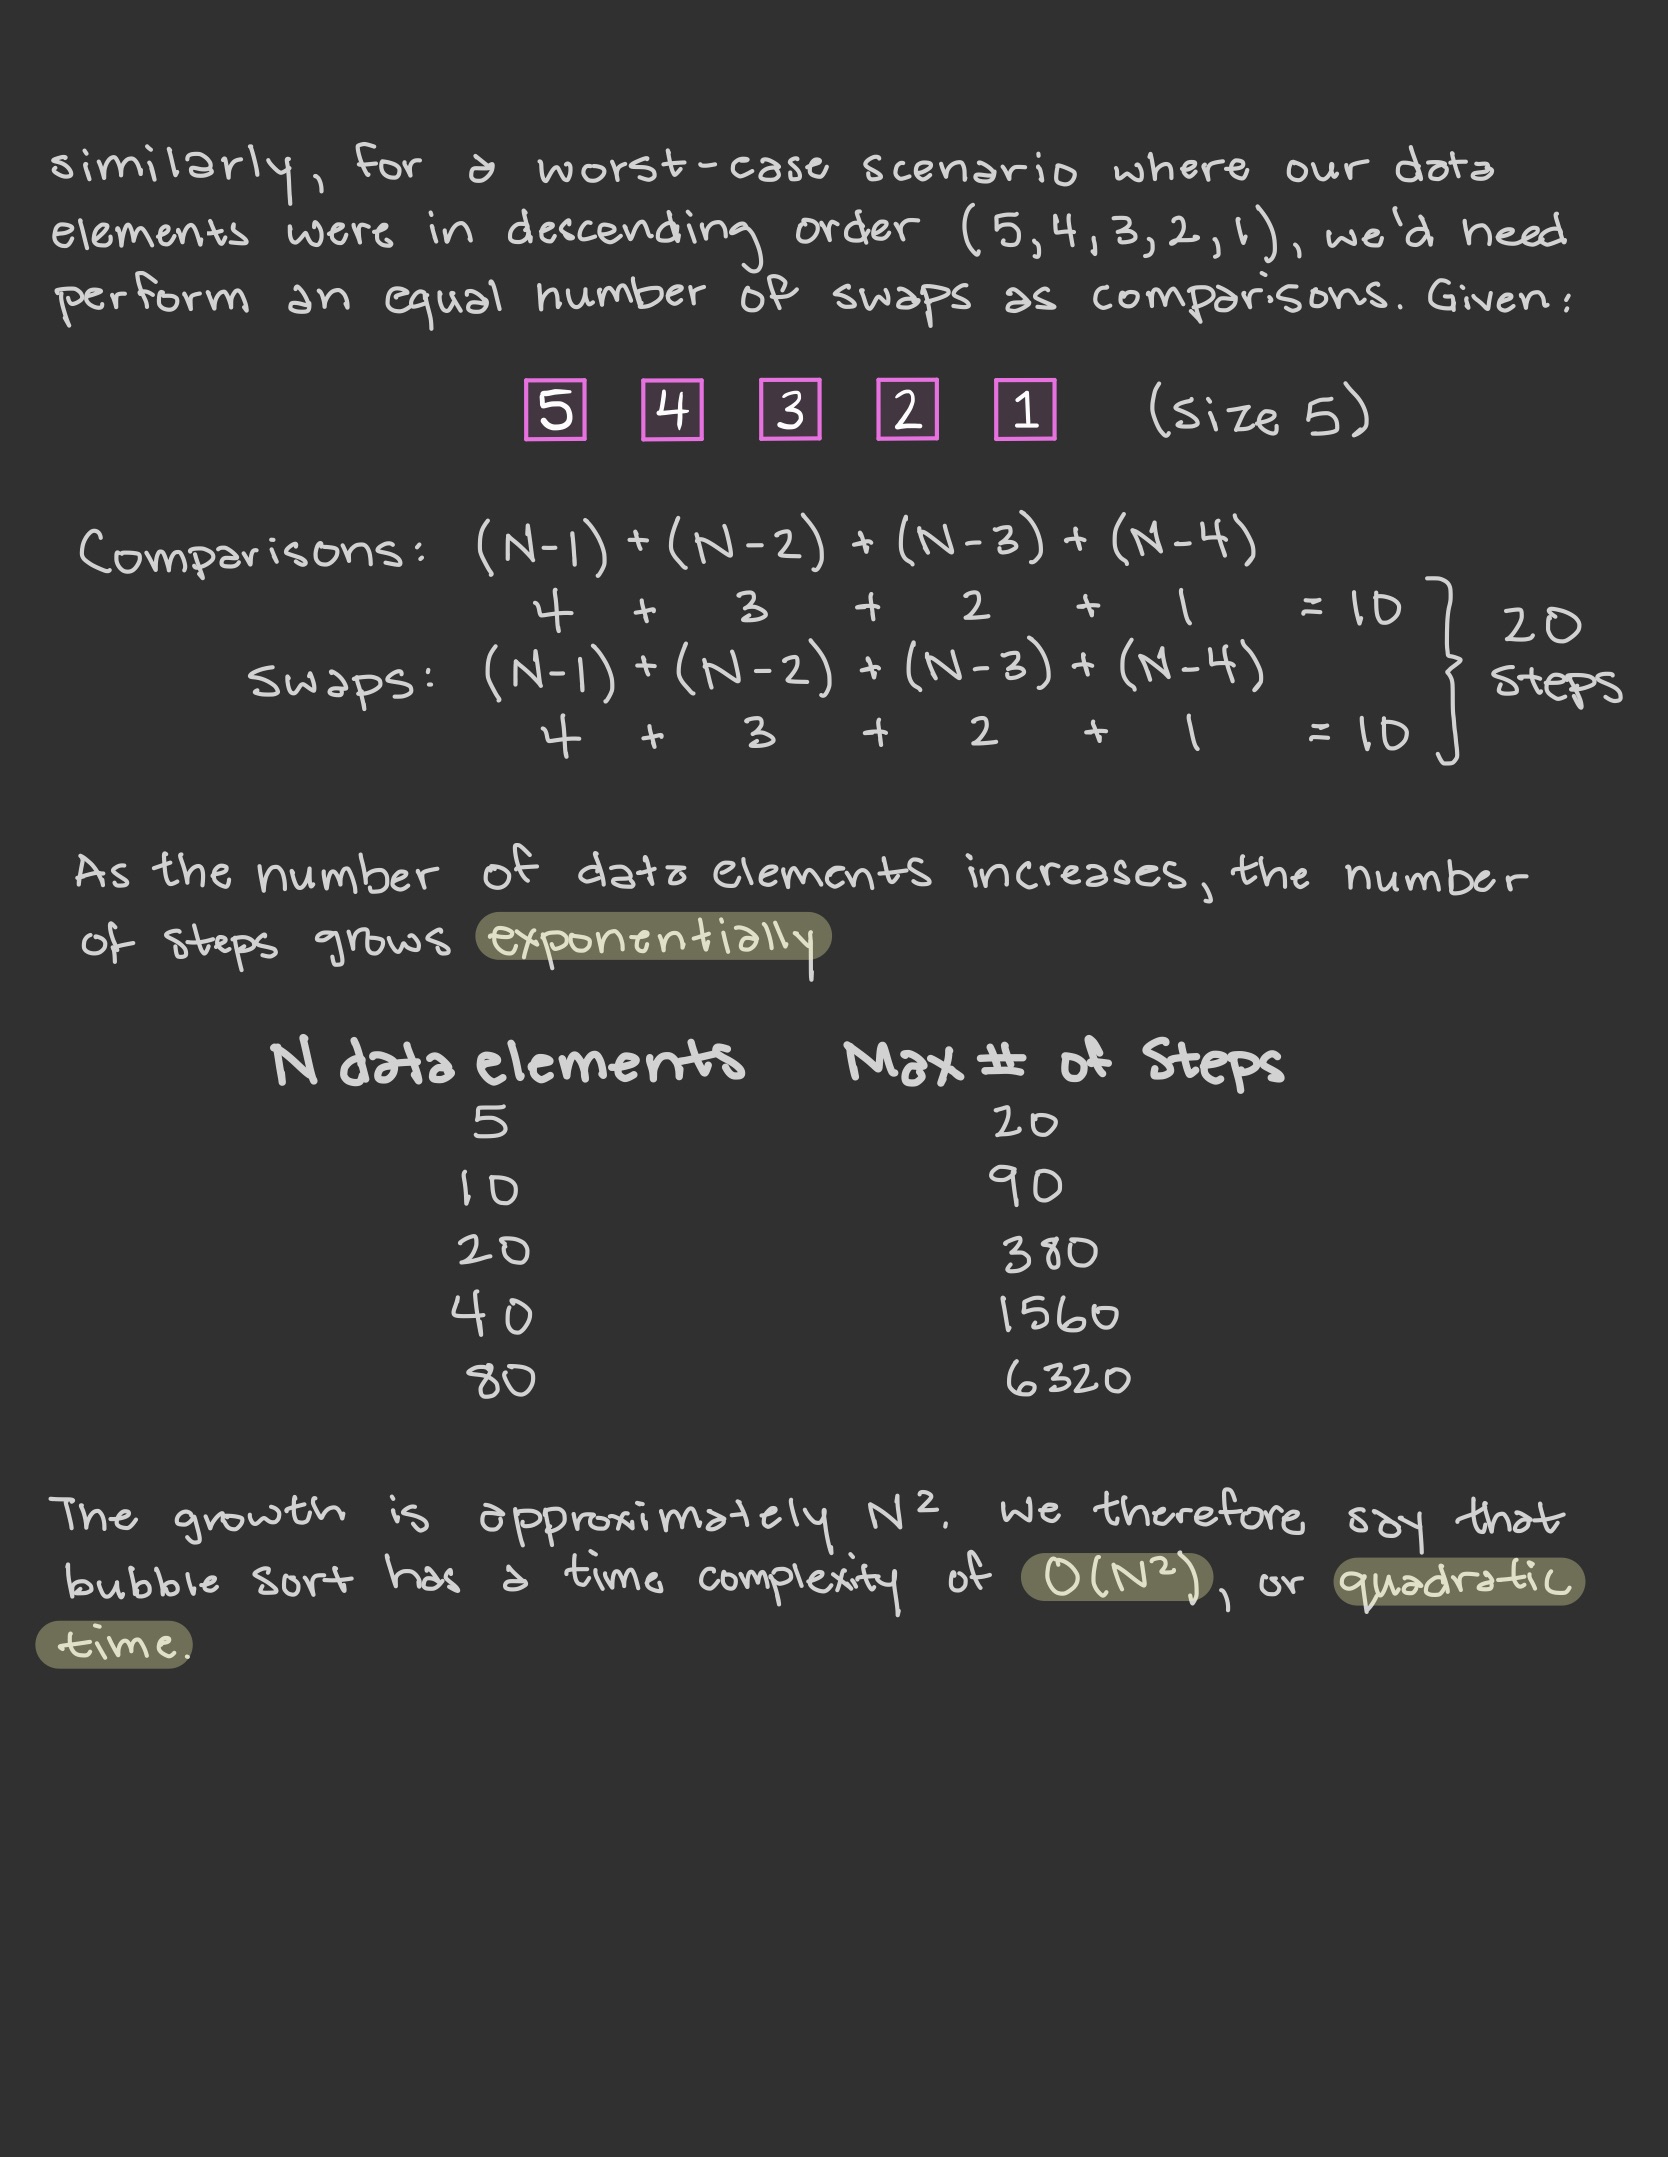 similarly, for a worst-case scenario where our data
elements were in descending order (5,4,3,2,1), we'd need
perform an equal number of swaps as comparisons. Given:
5 4 3 2 1 (size 5)
Comparisons: (N-1) + (N-2) + (N-3) + (N-4)
4 + 3 + 2 + 1 = 10
20
swaps: (N-1) + (N-2) + (N-3) + (N-4)
steps
4 + 3 + 2 + 1 = 10
As the number of data elements increases, the number
of steps grows exponentially
N data elements Max # of Steps
5 20
10 90
20 380
40 1560
80 6320
The growth is approximately N². We therefore say that
bubble sort has a time complexity of O(N²), or quadratic
time.